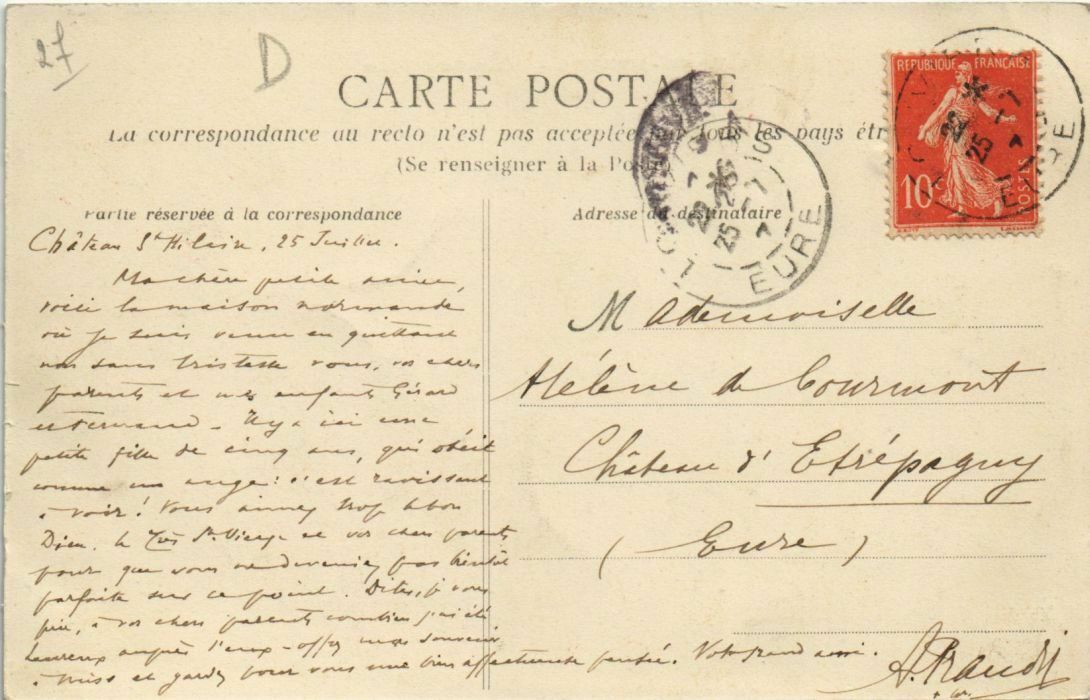 27
D
CARTE POSTALE
La correspondance au recto n'est pas acceptée par tous les pays étr
(Se renseigner à la Poste)
REPUBLIQUE FRANÇAISE
10
POSTES
EURE
25
7
EURE
25
7
Partie réservée à la correspondance
Adresse du destinataire
Château St Hilaire, 25 Juillet.
Ma chère petite amie,
voici la maison normande
où je suis venu en quittant
non sans tristesse vous, vos chers
parents et mes enfants Gérard
et Fernand – Il y a ici une
petite fille de cinq ans, qui obéit
comme un ange : c'est ravissant
à voir ! Vous aimez trop le bon
Dieu, la Très Ste Vierge et vos chers parents
pour que vous ne deveniez pas bientôt
parfaite sur ce point. Dites, je vous
prie, à vos chers parents combien j'ai été
heureux auprès d'eux – offrez mon souvenir
à miss et gardez pour vous une bien affectueuse pensée. Votre grand ami.
Mademoiselle
Hélène de Courmont
Château d'Etrépagny
(Eure)